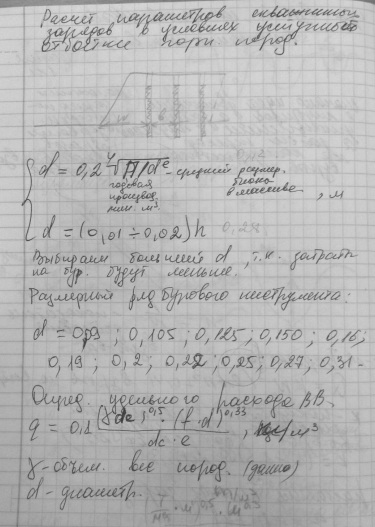 Расчет параметров скважинных
зарядов в условиях уступной
отбойки горн. пород.
d = 0,2 ⁴√П/dᵉ - средний размер.
годовая блока
производ. в массиве
млн. м³. , м
d = (0,01 ÷ 0,02) h
Выбираем больший d, т.к. затраты
на бур. будут меньше.
Размерный ряд бурового инструмента:
d = 0,09; 0,105; 0,125; 0,150; 0,16;
0,19; 0,2; 0,22; 0,25; 0,27; 0,31 -
Опред. удельного расхода ВВ.
q = 0,1 0,5 · (f · d)^0,33 / dc · e , кг/м³
γ - объем. вес пород. (дано)
d - диаметр.